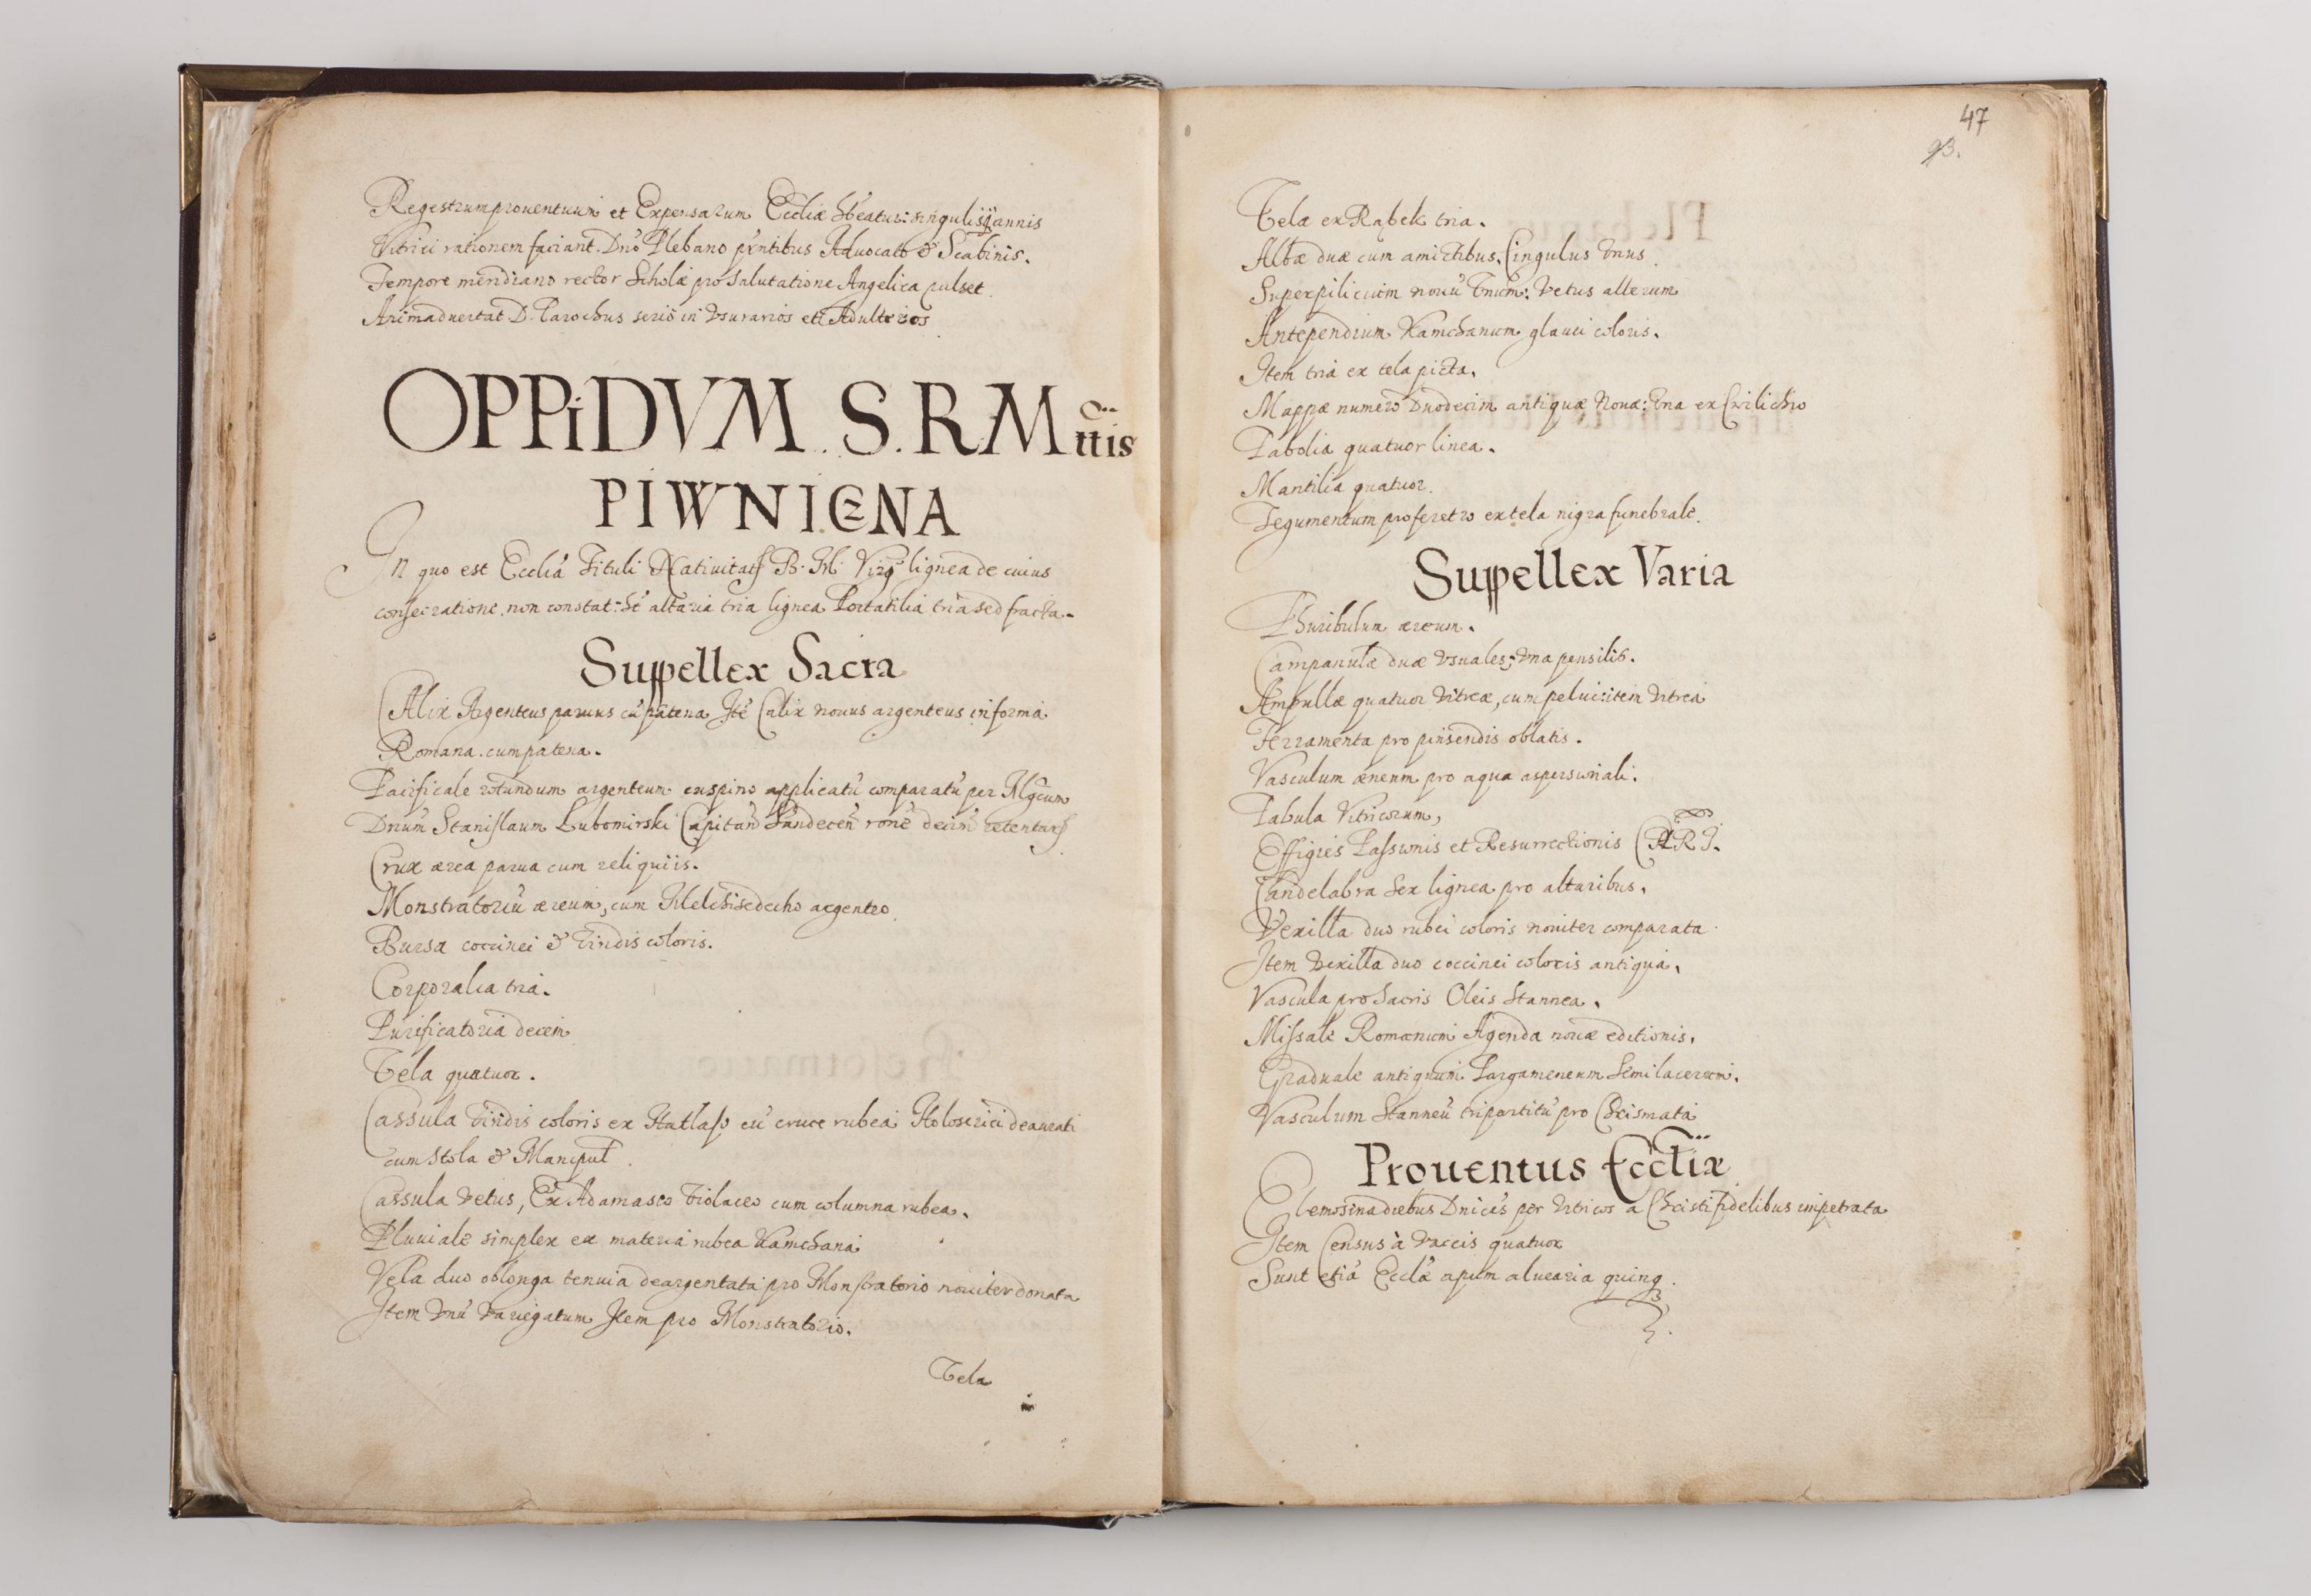 Regestrum prouentuum et Expensarum Eccliæ hbeatur: singulisq̃ annis
Vitrici rationem faciant Dnõ Plebano pñtibus Aduocato & Scabinis.
Tempore meridiano rector Scholæ pro Salutatione Angelica pulset.
Animaduertat D. Parochus serio in Vsurarios et Adulteros
OPPiDVM. S. R. M ttis
PIWNICZNA
In quo est Ecclia Tituli Natiuitats B. M. Virg lignea de cuius
consecratione non constat: hẽ altaria tria lignea Portatilia tria sed fracta.
Suppellex Sacra
CAlix Argenteus paruus cũ patena Itẽ Calix nouus argenteus in forma
Romana cum patena.
Pacificale rotundum argenteum cuspino applicatũ comparatũ per Mgcum
Dnum Stanislaum Lubomirski Capitan Sandecen̄ rone decim̄ retentars
Crux ærea parua cum reliquiis.
Monstratoriũ æreum, cum Melchisedecho argenteo
Bursa coccinei & viridis coloris.
Corporalia tria.
Purificatoria decem
Vela quatuor.
Cassula viridis coloris ex Hatłaso cũ cruce rubea Holoserici deaurati
cum Stola & Manipul.
Cassula vetus, Ex Adamasco violaceo cum columna rubea.
Pluuiale simplex ex materia rubea Kamchana
Vela duo oblonga tenuia deargentata pro Monstratorio nouiter donata
Item Vnũ Variegatum Item pro Monstratorio.
Vela
47
93.
Velæ ex Rąbek tria.
Albæ duæ cum amictibus. Cingulus Vnus.
Superpilicium nouũ Vnum: Vetus alterum
Antependium Kamchanum glauci coloris.
Item tria ex tela picta.
Mappæ numero Duodecim antiquæ Nouæ: Vna ex Cwilicho
Pabolia quatuor linea.
Mantilia quatuor.
Tegumentum pro feretro ex tela nigra funebrale.
Suppellex Varia
Thuribulum æreum.
Campanulæ duæ Vsuales; Vna pensilis.
Ampullæ quatuor Vitreæ, cum pelui item Vitrea
Ferramenta pro pinsendis oblatis.
Vasculum æneum pro aqua aspersionali.
Tabula Vitricorum,
Effigies Passionis et Resurrectionis CHRI.
Candelabra Sex lignea pro altaribus.
Vexilla duo rubei coloris nouiter comparata.
Item Vexilla duo coccinei coloris antiqua.
Vascula pro Sacris Oleis Stannea.
Missale Romanum Agenda nouæ editionis.
Graduale antiquum Pargameneum Semilacerum.
Vasculum Stanneũ tripartitũ pro Chrismate
Prouentus Eccliæ
Elemosina diebus Dnicis per Vitricos a Christi fidelibus impetrata
Item Census à Vaccis quatuor
Sunt etiã Ecclæ apum aluearia quinq.